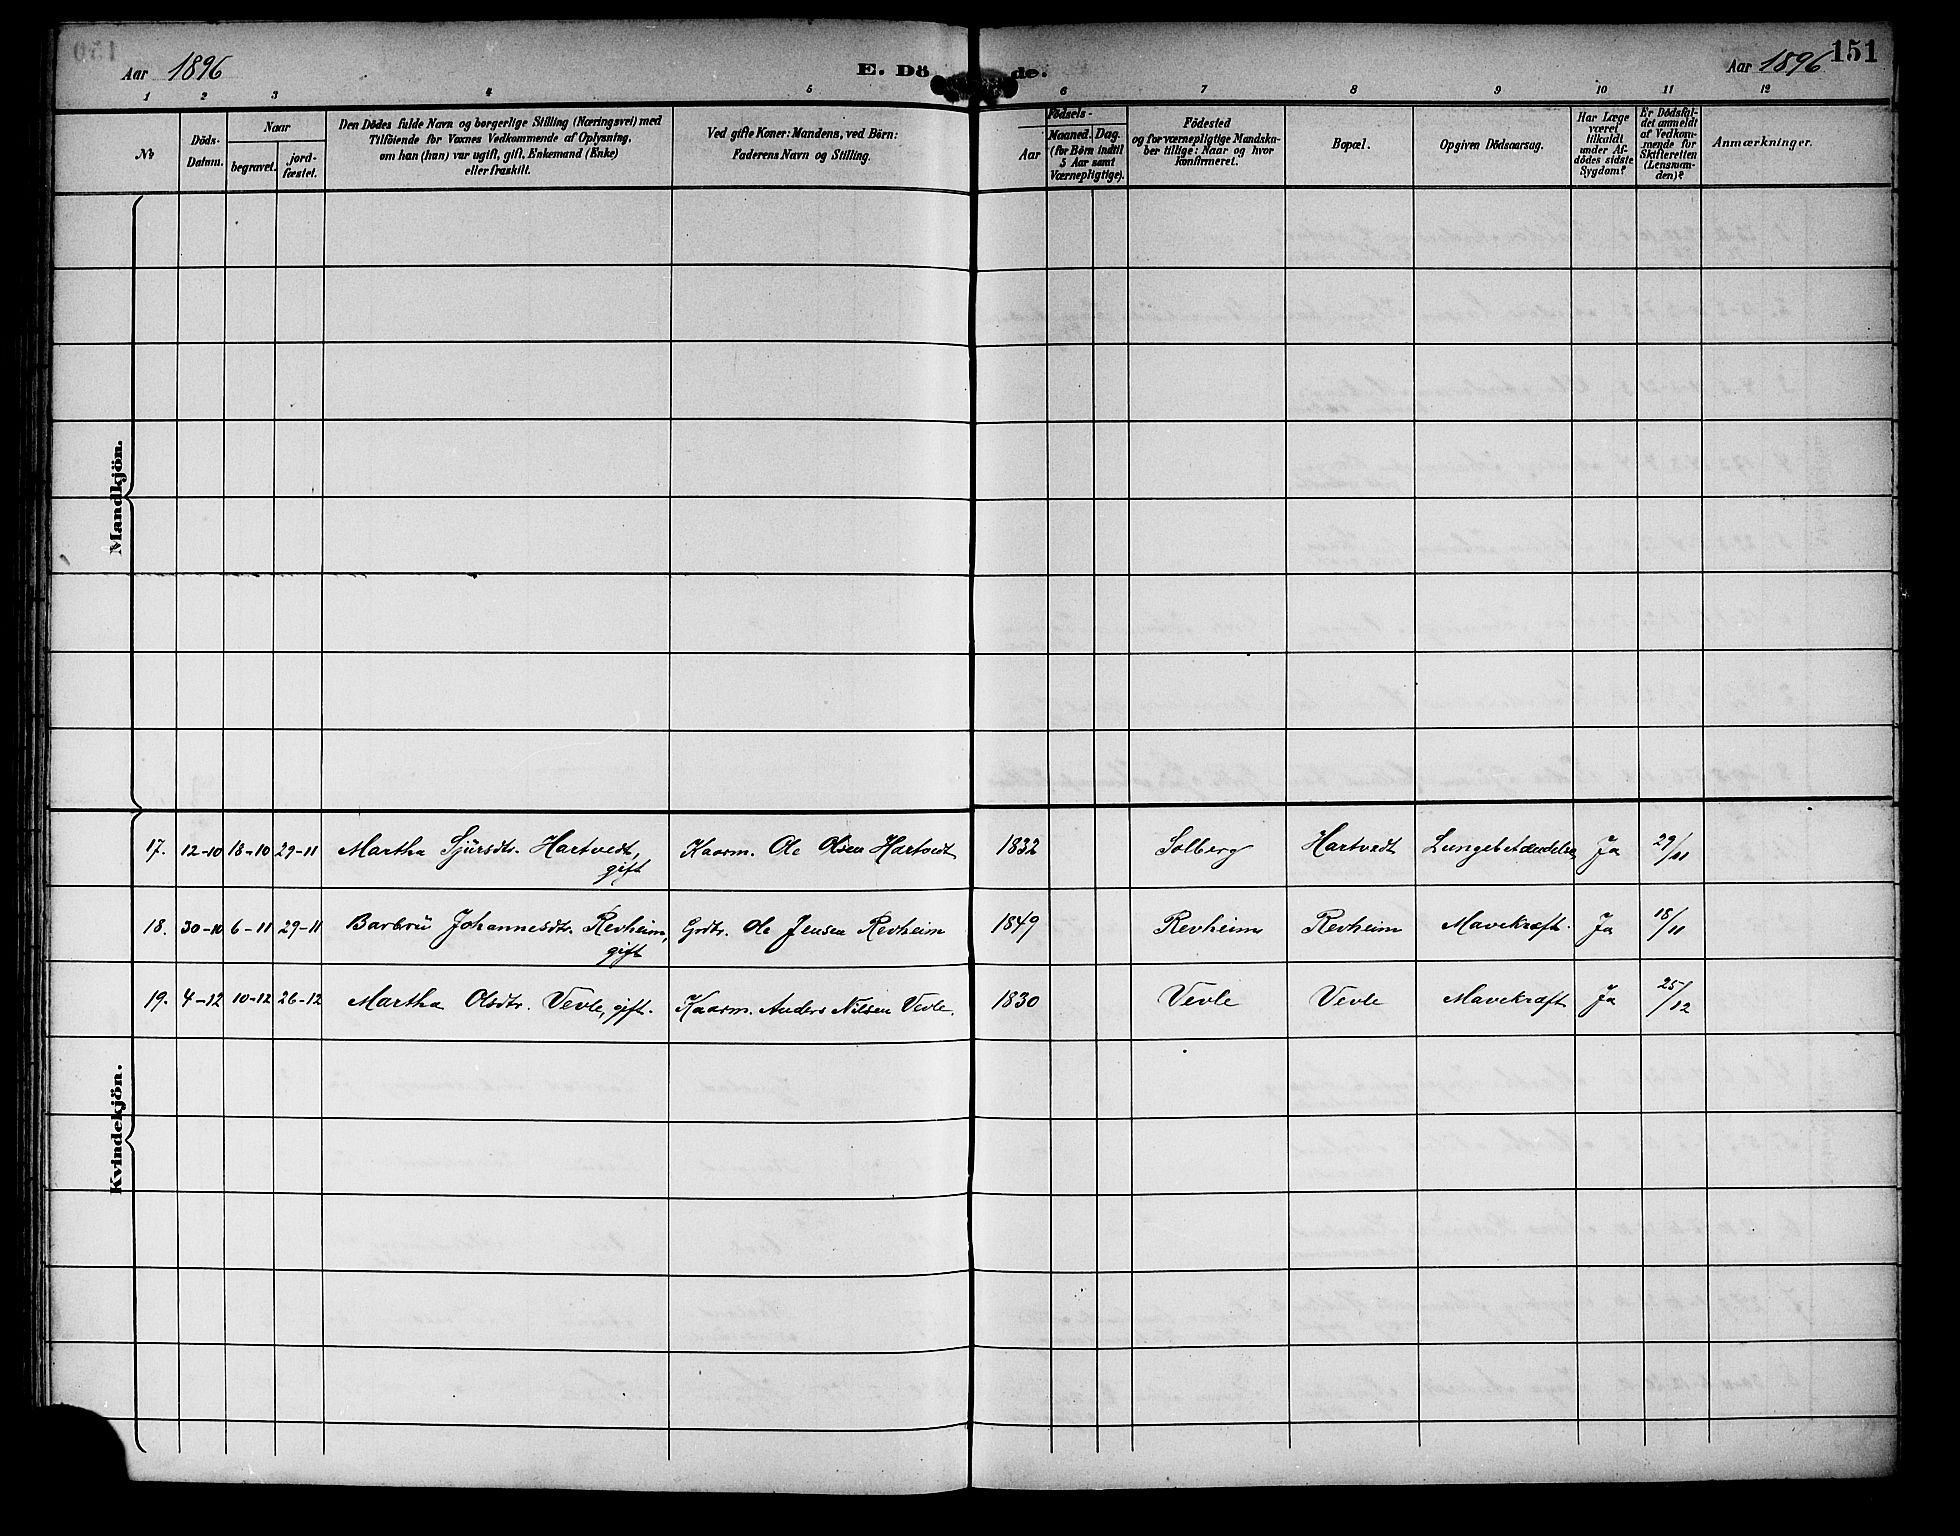 Aar 1896 E. Dö de. Aar 1896 151
1 2 3 4 5 6 7 8 9 10 11 12
No
Döds-
Datum.
Naar
begravet.
jord-
fæstet.
Den Dödes fulde Navn og borgerlige Stilling (Næringsvei) med
Tilföiende for Voxnes Vedkommende af Oplysning,
om han (hun) var ugift, gift, Enkemand (Enke)
eller fraskilt.
Ved gifte Koner: Mandens, ved Börn:
Faderens Navn og Stilling.
Födsels-
Aar
Maaned.
Dag.
(for Börn indtil
5 Aar samt
Værnepligtige).
Födested
og for værnepligtige Mandska-
ber tillige: Naar og hvor
konfirmeret.
Bopæl.
Opgiven Dödsaarsag.
Har Læge
været
tilkaldt
under Af-
dödes sidste
Sygdom?
Er Dödsfal-
det anmeldt
af Vedkom-
mende for
Skifteretten
(Lensman-
den)?
Anmærkninger.
Mandkjön.
17. 12-10 18-10 29-11 Martha Sjursdtr. Hartvedt, Kaarm. Ole Olsen Hartvedt 1832 Solberg Hartvedt Lungebetændelse Ja 29/11
gift
18. 30-10 6-11 29-11 Barbru Johannesdtr. Revheim, Grdbr. Ole Jensen Revheim 1849 Revheim Revheim Mavekræft. Ja 18/11
gift
19. 4-12 10-12 26-12 Martha Olsdtr. Vevle, gift. Kaarm. Anders Nilsen Vevle. 1830 Vevle Vevle Mavekræft Ja 25/12
Kvindekjön.